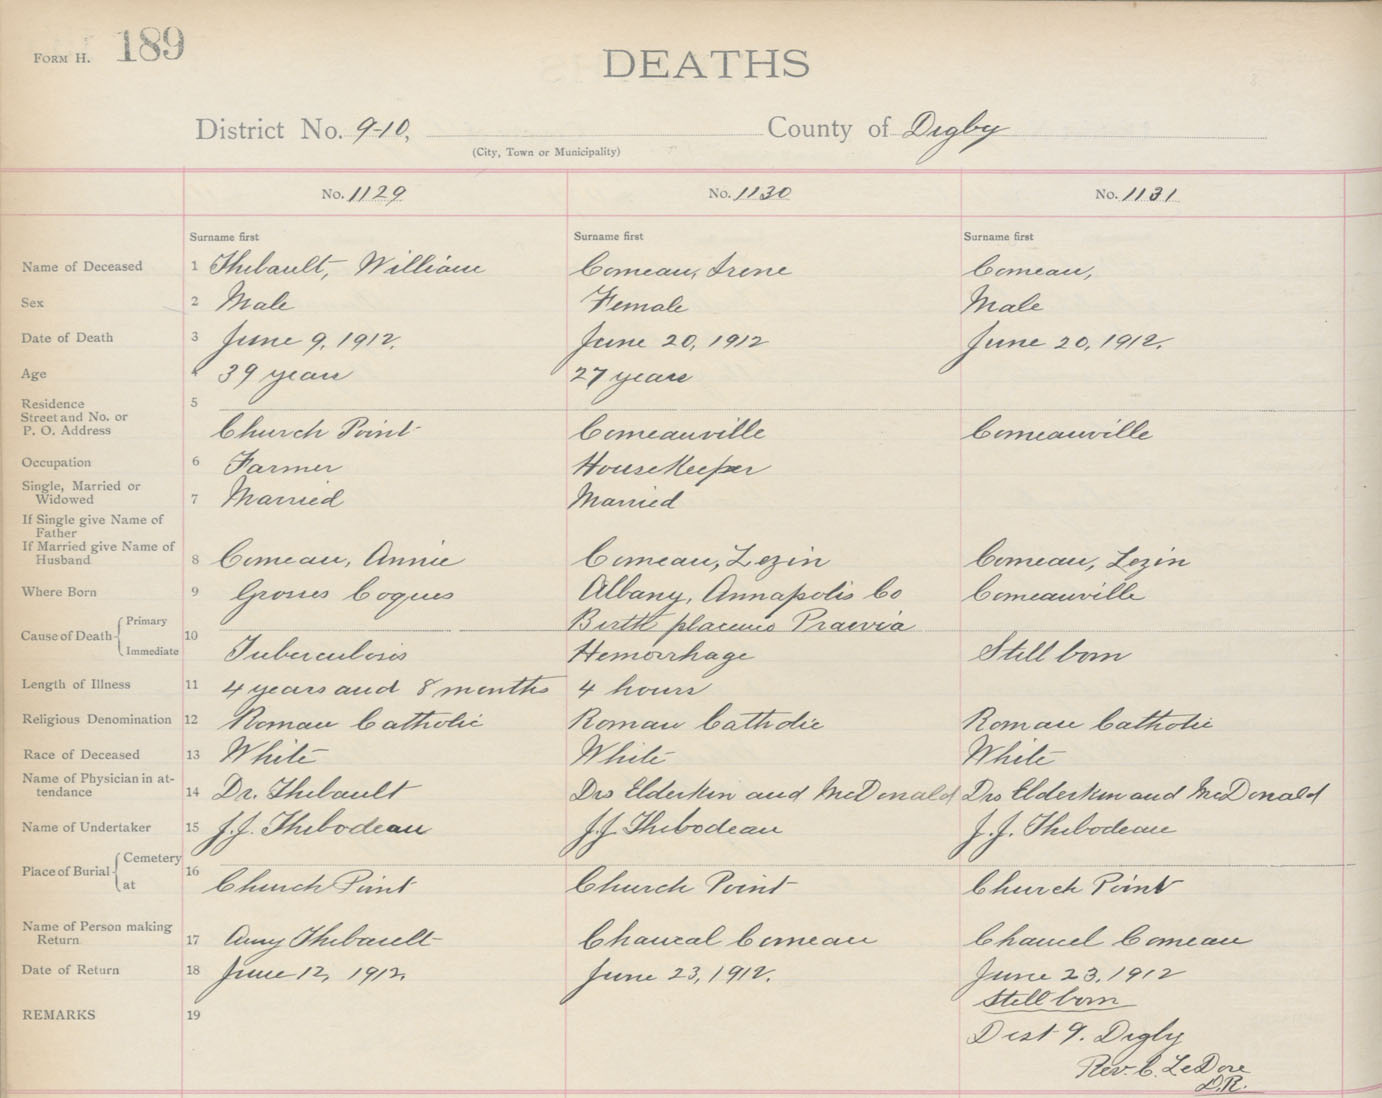 FORM H. 189
DEATHS
District No. 9-10, County of Digby
(City, Town or Municipality)
No. 1129 No. 1130 No. 1131
Surname first Surname first Surname first
Name of Deceased 1 Thibault, William Comeau, Irene Comeau,
Sex 2 Male Female Male
Date of Death 3 June 9, 1912. June 20, 1912 June 20, 1912.
Age 4 39 years 27 years
Residence 5
Street and No. or
P. O. Address Church Point Comeauville Comeauville
Occupation 6 Farmer HouseKeeper
Single, Married or
Widowed 7 Married Married
If Single give Name of
Father
If Married give Name of
Husband 8 Comeau, Annie Comeau, Lezin Comeau, Lezin
Where Born 9 Grosses Coques Albany, Annapolis Co Comeauville
Primary Birth Praevia
Cause of Death 10
Immediate Tuberculosis Hemorrhage Still born
Length of Illness 11 4 years and 8 months 4 hours
Religious Denomination 12 Roman Catholic Roman Catholic Roman Catholic
Race of Deceased 13 White White White
Name of Physician in at-
tendance 14 Dr. Thibault Drs Elderkin and McDonald Drs Elderkin and McDonald
Name of Undertaker 15 J.J. Thibodeau J.J. Thibodeau J.J. Thibodeau
Cemetery
Place of Burial 16
at Church Point Church Point Church Point
Name of Person making
Return 17 Amy Thibault Comeau Comeau
Date of Return 18 June 12, 1912. June 23, 1912. June 23, 1912
Still born
REMARKS 19
Dist 9. Digby
Rev. C. LeDore
D.R.